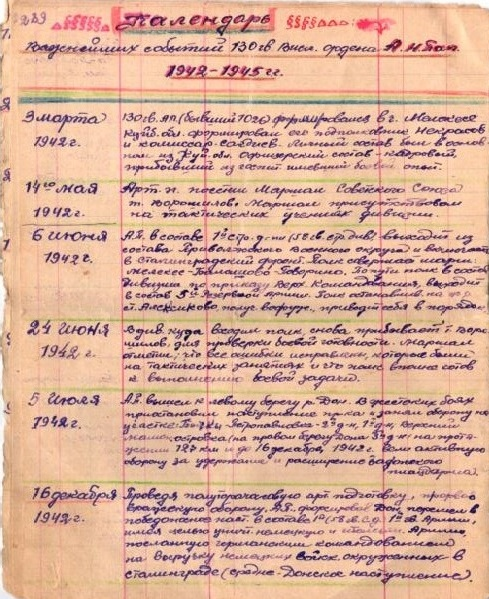 Календарь
Важнейших событий 130 гв Висл. ордена А.Н Пап.
1942-1945 гг.
3 марта 1942 г.
130 гв. АП. (бывший 1026) формировался в г. Мелекесс
Куйб. обл. формировал его подполковник Некрасов
и комиссар Личный состав был в основ-
ном из Куй. обл. Офицерский состав - кадровый,
прибывший из имевший боев. опыт.
14го мая 1942 г.
Арт. п. посетил Маршал Советского Союза
т. Ворошилов. Маршал присутствовал
на тактических учениях дивизии.
6 июня 1942 г.
А.П. в составе 1й стр. д-ии (58 гв. стр див) выходит из
состава Приволжского Военного округа и
в Сталинградский фронт. Полк совершал марш:
Мелекес - - По пути полк в составе
дивизии по приказу Верх Командования, выходит
в состав 5й Резервной Армии. Полк остановил. на
ст. Алексиково, приводит себя в порядок.
24 июня 1942 г.
В див. куда входит полк, снова прибывает т. Воро-
шилов, для проверки боевой готовности. Маршал
отметил; что все ошибки исправлены, которые были
на тактических занятиях и что полк вполне готов
к выполнению боевой задачи.
5 июля 1942 г.
АП вышел к левому берегу р. Дон. В жестоких боях
приостановил наступление пр-ка и занял оборону на
участке: 2й д-н, 1й д-н Верхний
Мамон, (на правом берегу Дона 3й д-н) на протя-
жении 127 км и до 16 декабря, 1942 г. вел активную
оборону за удержание и расширение Задонского
плацдарма).
16 декабря 1942 г.
Проведя полуторачасовую арт. подготовку, прорвал
вражескую оборону, АП. форсировал Дон, перешел в
победоносное наст. в составе 1й (58 гв. С.д. 1й гв. Армии,
имея целью уничт. немецкую и Армию,
посланную германским командованием
на выручку немецких войск окруженных в
Сталинграде (средне-Донское наступление).